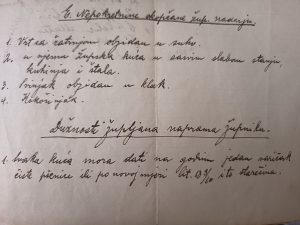 E. Nepokretnine okopčane žup. nadarju.
1. Vrt sa čatrnjom obzidan u suho.
2. u njemu župska kuća u sasvim slabom stanju,
kuhinja i štala.
3. Svinjak obzidan u klak.
4. Kokošinjak.
Dužnosti župljana naprama župniku.
1. Svaka kuća mora dati na godinu jedan varićak
čiste pšenice ili po novoj mjeri lit. 13 i to starešina.